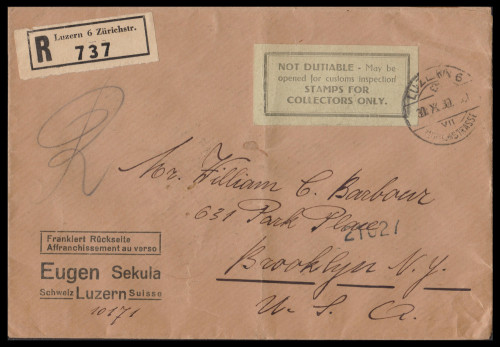 R Luzern 6 Zürichstr.
737
NOT DUTIABLE - May be
opened for customs inspection
STAMPS FOR
COLLECTORS ONLY.
R
Mr. William C. Barbour
631 Park Place
21021
Brooklyn N.Y.
U. S. A.
Frankiert Rückseite
Affranchissement au verso
Eugen Sekula
Schweiz Luzern Suisse
10171